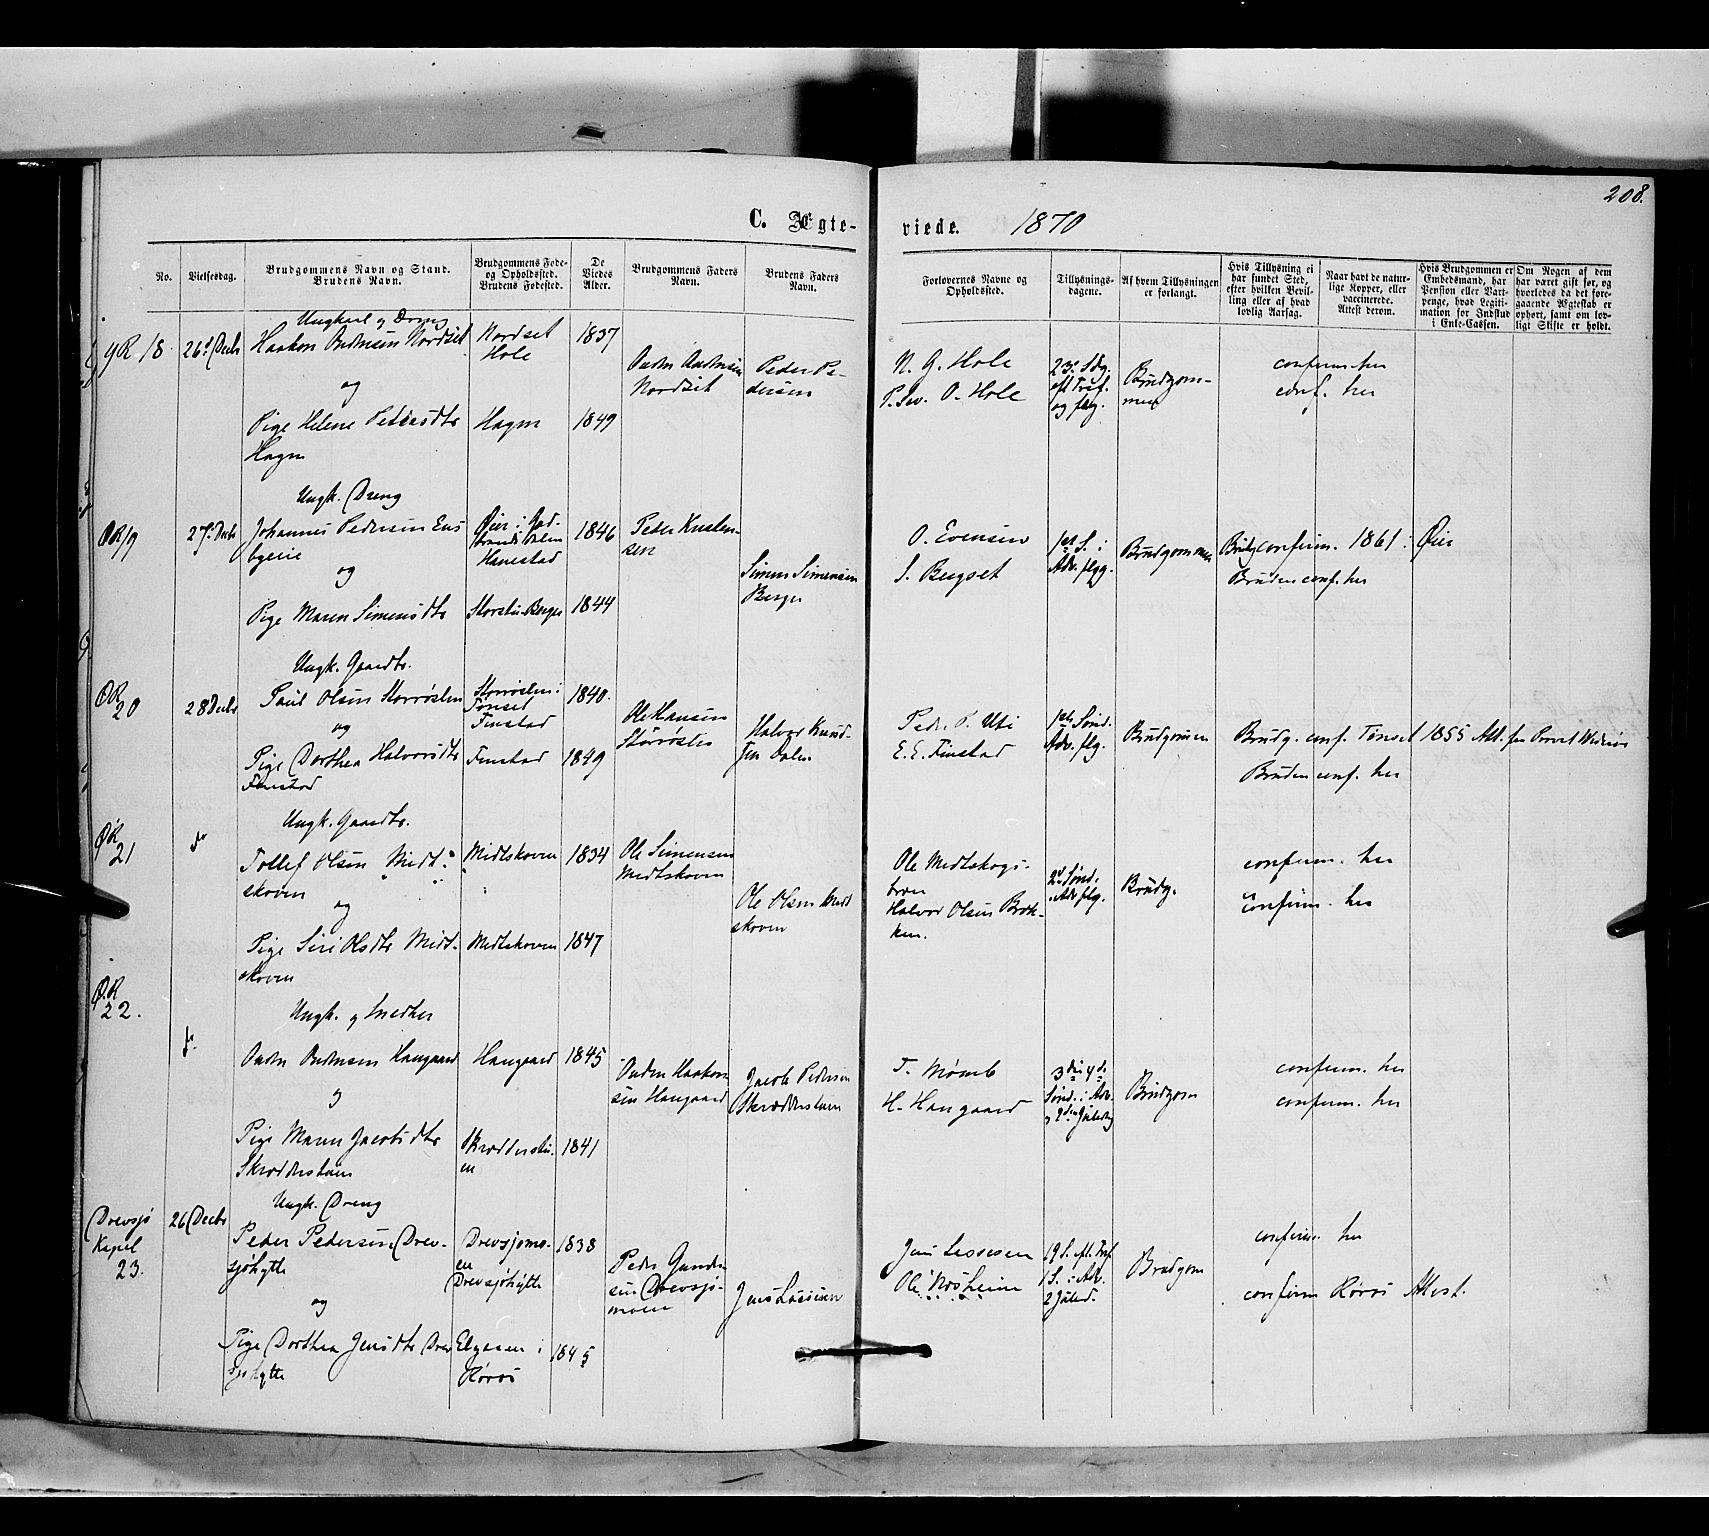 208.
C. Ægte- viede. 1870
No.
Vielsesdag.
Brudgommens Navn og Stand.
Brudens Navn.
Brudgommens Føde-
og Opholdssted.
Brudens Fødested.
De
Viedes
Alder.
Brudgommens Faders
Navn.
Brudens Faders
Navn.
Forlovernes Navne og
Opholdssted.
Tillysnings-
dagene.
Af hvem Tillysningen
er forlangt.
Hvis Tillysning ei
har fundet Sted,
efter hvilken Bevil-
ling eller af hvad
lovlig Aarsag.
Naar havt de natur-
lige Kopper, eller
vaccinerede.
Attest derom.
Hvis Brudgommen er
Embedsmand, har
Pension eller Vart-
penge, hvad Legiti-
mation for Indskud
i Enke-Cassen.
Om Nogen af dem
har været gift før, og
hvorledes da det fore-
gaaende Ægteskab er
ophørt, samt om lov-
ligt Skifte er holdt.
YR 18
26. Decbr
Ungkarl og Dreng
Haakon Andersen Nordset
og
Pige Helene Pedersdtr
Hagen
Nordset
Hole
Hagen
1837
1849
Anders Andersen
Nordset
Peder Pe-
dersen
N. G. Hole
O. Hole
23. Sdg.
eft. Tref.
og flg.
Brudgom-
men
conferm. her
conf. her
ØR 19
27. Decbr
Ungk. Dreng
Johannes Pedersen Ens
byeeie
og
Pige Maren Simensdtr
Øier i Gud-
brandsdalen
Hanestad
Storstu-Berger
1846
1844
Peder Knudsen-
sen
Simen Simensen
Berger
O. Evensen
S. Bergset
1ste S. i
Adv. flgg.
Brudgommen
Brudg conferm. 1861 i Øier
Bruden conf. her
ØR
20
28 Decbr
Ungk. Gaardbr.
Paul Olsen Storrøsten
og
Pige Dorthea Halvorsdtr
Finstad
Storrøsten i
Tønset
Finstad
Finstad
1840.
1849
Ole Hansen
Storrøsten
Halvor Knud-
sen Dalen
Peder P. Uti
E. E. Finstad
1ste Sønd.
Adv. flg.
Brudgommen
Brudg. conf. Tønset 1855 Att. fra Provst
Bruden conf. her
ØR
21
do
Ungk. Gaardbr.
Tollef Olsen Midt-
skoven
og
Pige Siri Olsdtr Midt-
skoven
Midtskoven
Midtskoven
1834
1847
Ole Simensen
Midtskoven
Ole Olsen Midt
skoven
Ole Midtskogs-
broen
Halvor Olsen Brok-
ken.
2d Sønd.
i Adv flg.
Brudg.
conferm. her
conferm. her
ØR
22.
do
Ungk. og Snedker
Anders Andersen Haugaard
og
Pige Maren Jacobsdtr
Skrædderstuen
Haugaard
Skrædderstu-
en
1845
1841
Anders Haakon-
sen Haugaard
Jacob Pedersen
Skrædderstuen
T. Mømb
H. Haugaard
3die 4de
Sønd. i Adv.
og 2den Juledag
Brudgom
conferm. her
conferm. her
Drevsjø
Kapel
23.
26 Decbr
Ungk. Dreng
Peder Pedersen Drev-
sjøhytte
og
Pige Dorthea Jensdtr Drev
sjøhytte
Drevsjømo-
en
Drevsjøhytte
Elgaaen i
Røros
1838
1845
Peder Gunder-
sen Drevsjø-
moen
Jens Lassesen
Jens Lassesen
Ole Næsheim
19 S. eft. Tref.
1 S. i Adv.
2 Juled.
Brudgom
conferm. her
conferm Røros Attest.